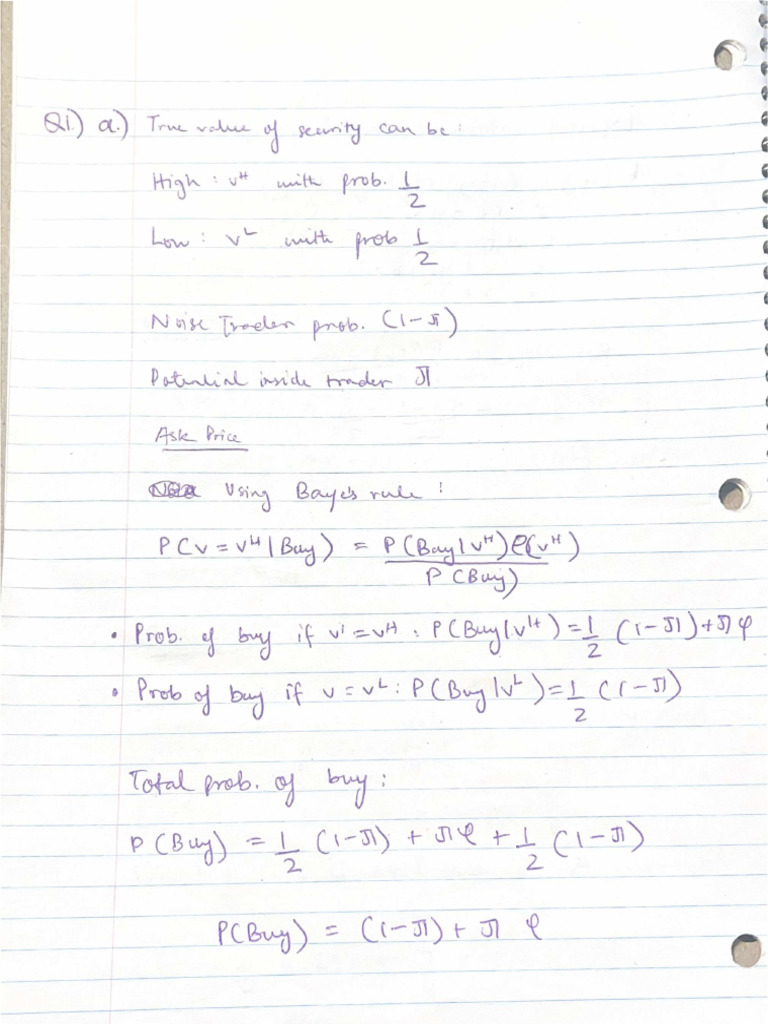 Q1.) a.) True value of security can be:
High : v^H with prob. 1/2
Low : v^L with prob 1/2
Noise Trader prob. (1-π)
Potential inside trader π
Ask Price
Using Baye's rule :
P(v = v^H | Buy) = P(Buy | v^H) P(v^H) / P(Buy)
• Prob. of buy if v^i = v^H : P(Buy | v^H) = 1/2 (1-π) + π φ
• Prob of buy if v = v^L : P(Buy | v^L) = 1/2 (1-π)
Total prob. of buy :
P(Buy) = 1/2 (1-π) + π φ + 1/2 (1-π)
P(Buy) = (1-π) + π φ